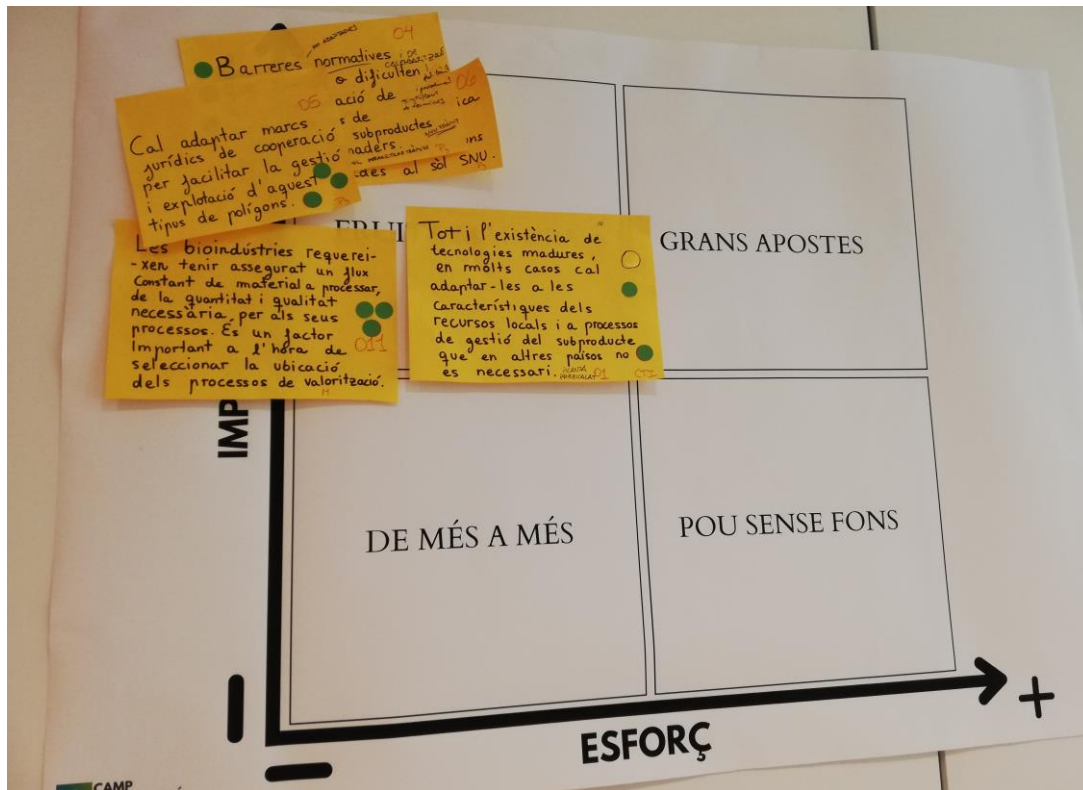 04
Barreres normatives
o dificulten
06
ació de
s de
ica
subproductes
naders.
ins
al sòl SNU.
05
Cal adaptar marcs
jurídics de cooperació
per facilitar la gestió
i explotació d'aquest
tipus de polígons.
Les bioindústries requerei-
-xen tenir assegurat un flux
Constant de material a processar,
de la quantitat i qualitat
necessària, per als seus
processos. És un factor
Important a l'hora de
011
seleccionar la ubicació
dels processos de valorització.
M
Tot i l'existència de
tecnologies madures,
en molts casos cal
adaptar-les a les
característiques dels
recursos locals i a processos
de gestió del subproducte
que en altres països no
es necessari.
P1
CTI
FRUI
GRANS APOSTES
IMP
DE MÉS A MÉS
POU SENSE FONS
ESFORÇ
+
CAMP